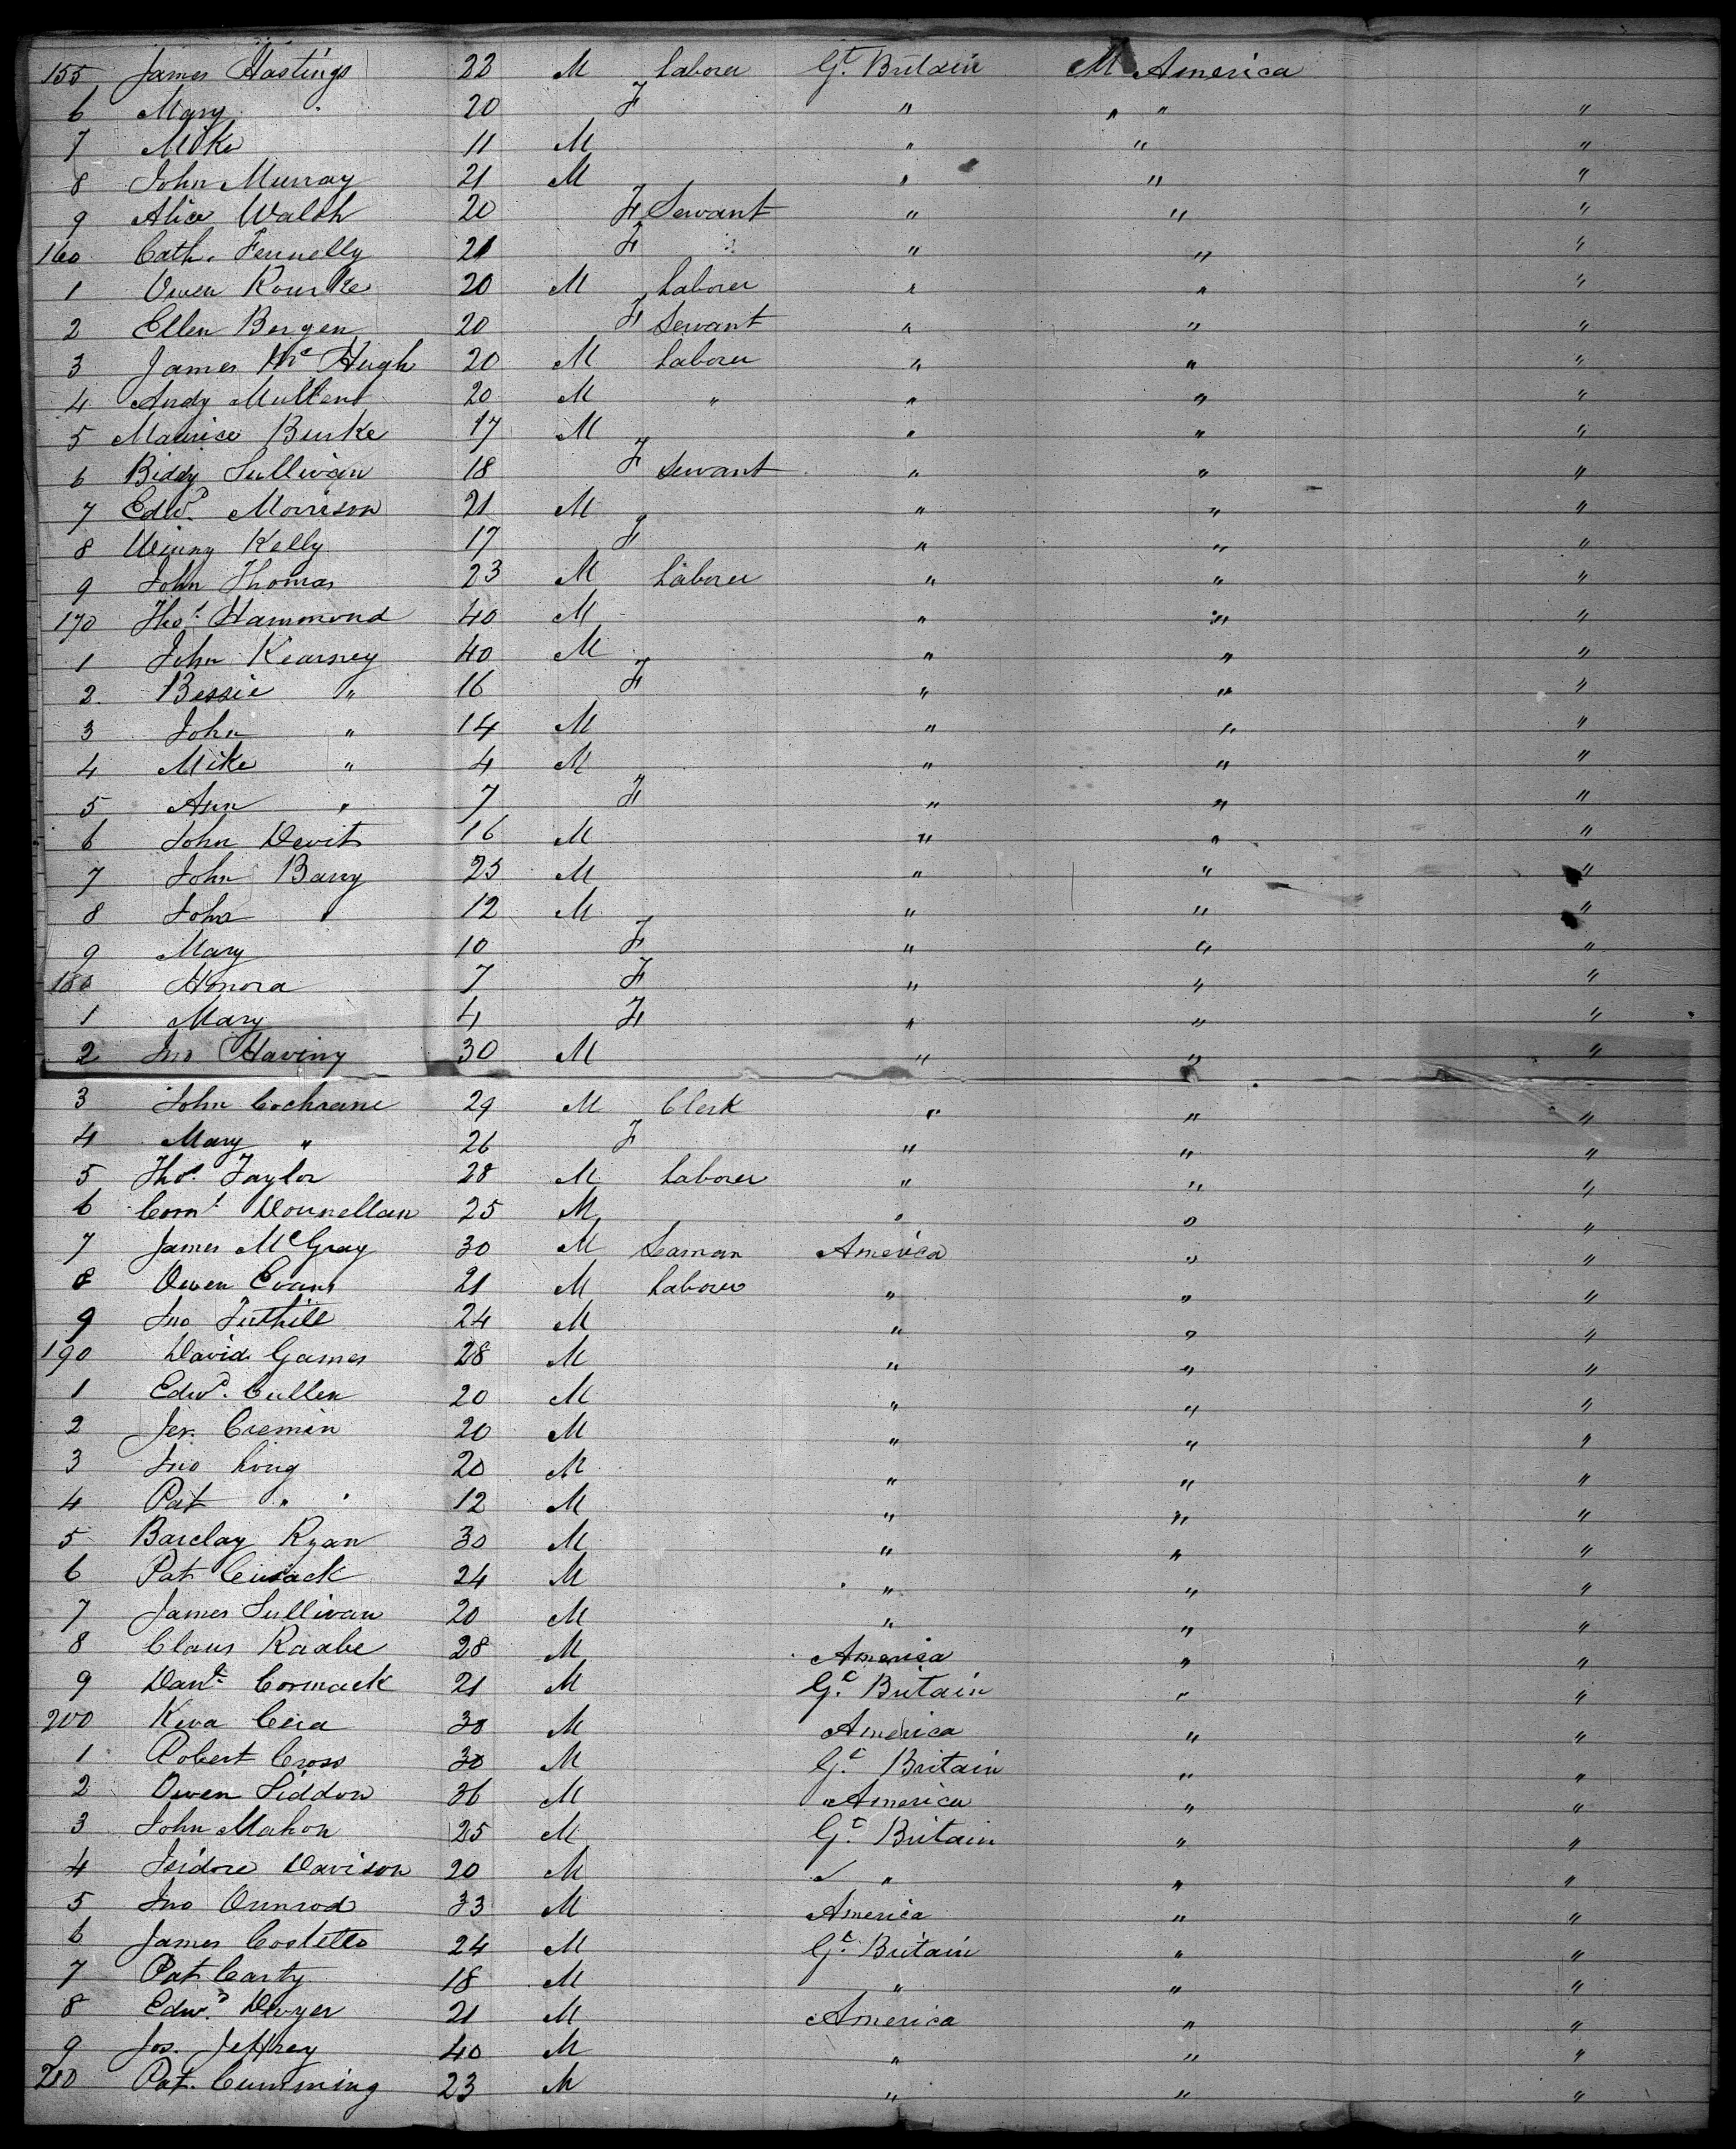 155 James Hastings 22 M Laborer Gt. Britain M America
6 Mary " 20 F " " " "
7 Mike 11 M " " "
8 John Murray 21 M " " "
9 Alice Walsh 20 F Servant " " "
160 Cath. Fennelly 21 F " " "
1 Owen Rourke 20 M Laborer " " "
2 Ellen Bergen 20 F Servant " " "
3 James McHugh 20 M Laborer " " "
4 Andy Mullens 20 M " " " "
5 Maurice Burke 17 M " " "
6 Biddy Sullivan 18 F Servant " " "
7 Edwd. Morrison 21 M " " "
8 Winny Kelly 17 F " " "
9 John Thomas 23 M Laborer " " "
170 Thos. Hammond 40 M " " "
1 John Kearney 40 M " " "
2 Bessie " 16 F " " "
3 John " 14 M " " "
4 Mike " 4 M " " "
5 Ann " 7 F " " "
6 John Devit 16 M " " "
7 John Barry 25 M " " "
8 John " 12 M " " "
9 Mary 10 F " " "
180 Honora 7 F " " "
1 Mary 4 F " " "
2 Jno Haviny 30 M " " "
3 John Cochrane 29 M Clerk " " "
4 Mary " 26 F " " "
5 Thos. Taylor 28 M Laborer " " "
6 Corns. Donnellan 25 M " " "
7 James McGray 30 M Seaman America " "
8 Owen Evans 21 M Laborer " " "
9 Jno Tuthill 24 M " " "
190 David Games 28 M " " "
1 Edwd. Cullen 20 M " " "
2 Jer. Cremin 20 M " " "
3 Jno Long 20 M " " "
4 Pat " 12 M " " "
5 Barclay Ryan 30 M " " "
6 Pat Cusack 24 M " " "
7 James Sullivan 20 M " " "
8 Claus Raabe 28 M America " "
9 Danl. Cormack 21 M Gt. Britain " "
200 30 M America " "
1 Robert Cross 30 M Gt. Britain " "
2 Owen Siddon 36 M America " "
3 John Mahon 25 M Gt. Britain " "
4 Isidore Davison 20 M " " "
5 Jno Ormrod 33 M America " "
6 James Costello 24 M Gt. Britain " "
7 Pat Carty 18 M " " "
8 Edwd. Dwyer 21 M America " "
9 Jos. Jeffrey 40 M " " "
210 Pat. Cumming 23 M " " "